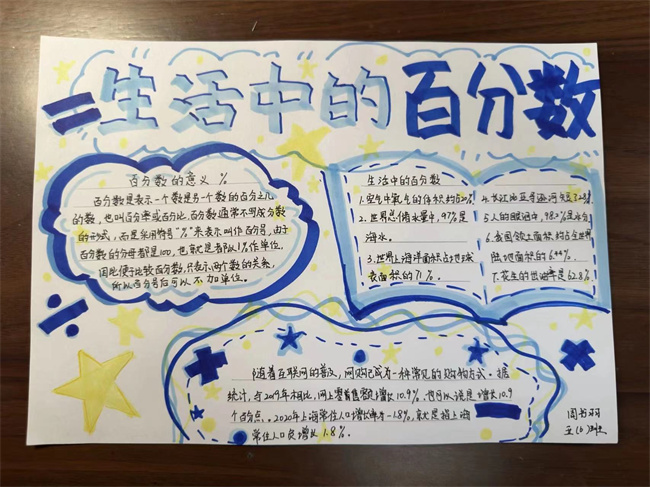 生活中的百分数
百分数的意义 %
百分数是表示一个数是另一个数的百分之几
的数,也叫百分率或百分比。百分数通常不写成分数
的形式,而是采用符号“%”来表示叫作百分号。由于
百分数的分母都是100,也就是都以1%作单位,
因此便于比较百分数,只表示两个数的关系,
所以百分号后可以不加单位。
生活中的百分数
1.空气中氧气的体积约占
2.世界总储水量中,97%是
海水。
3.世界上海洋面积占地球
表面积的71%。
4.长江
5.人的眼泪中,98.2%是水分
6.我国领土面积约占世界
陆地面积的6.44%
7.花生的出油率是62.8%
随着互联网的普及,网购已成为一种常见的购物方式。据
统计,与2019年相比,网上零售售额增长10.9%,也可以说是增长10.9
个百分点。2020年上海常住人口增长率为-1.8%,就是指上海
常住人口负增长1.8%.
周书羽
五(6)班